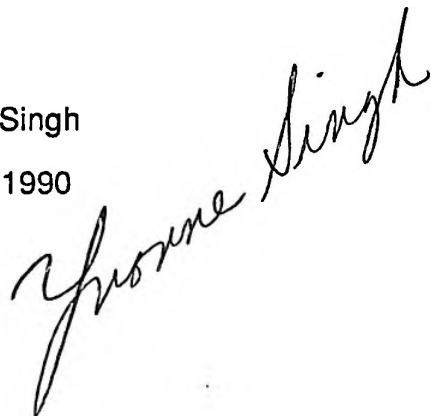 Singh
1990
Yvonne Singh